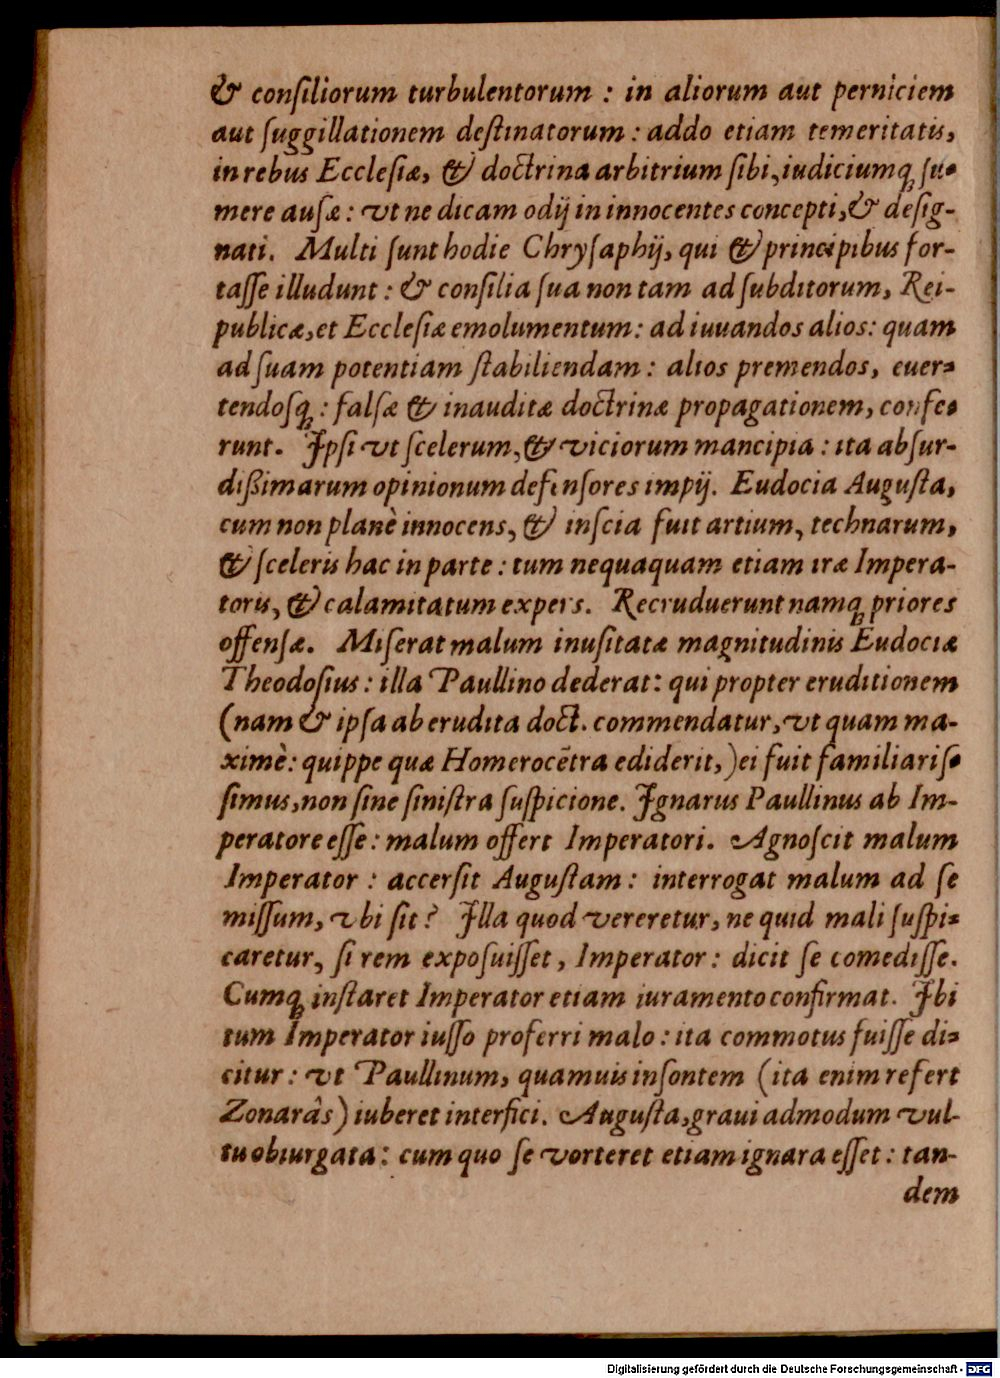 & conſiliorum turbulentorum : in aliorum aut perniciem
aut ſuggillationem deſtinatorum : addo etiam temeritatis,
in rebus Eccleſiæ, & doctrina arbitrium ſibi, iudiciumq́ꝫ ſu-
mere auſæ : vt ne dicam odij in innocentes concepti, & deſig-
nati. Multi ſunt hodie Chryſaphij, qui & principibus for-
taſſe illudunt : & conſilia ſua non tam ad ſubditorum, Rei-
publicæ, et Eccleſiæ emolumentum : ad iuuandos alios : quam
ad ſuam potentiam ſtabiliendam : alios premendos, euer-
tendoſq́ꝫ : falſæ & inauditæ doctrinæ propagationem, confe-
runt. Ipſi vt ſcelerum, & viciorum mancipia : ita abſur-
dißimarum opinionum defenſores impij. Eudocia Auguſta,
cum non planè innocens, & inſcia fuit artium, technarum,
& ſceleris hac in parte : tum nequaquam etiam iræ Impera-
toris, & calamitatum expers. Recruduerunt namq́ꝫ priores
offenſæ. Miſerat malum inuſitatæ magnitudinis Eudociæ
Theodoſius : illa Paullino dederat : qui propter eruditionem
(nam & ipſa ab erudita doct. commendatur, vt quam ma-
ximè : quippe quæ Homerocētra ediderit,) ei fuit familiariſ-
ſimus, non ſine ſiniſtra ſuſpicione. Ignarus Paullinus ab Im-
peratore eſſe : malum offert Imperatori. Agnoſcit malum
Imperator : accerſit Auguſtam : interrogat malum ad ſe
miſſum, vbi ſit? Illa quod vereretur, ne quid mali ſuſpi-
caretur, ſi rem expoſuiſſet, Imperator : dicit ſe comediſſe.
Cumq́ꝫ inſtaret Imperator etiam iuramento confirmat. Ibi
tum Imperator iuſſo proferri malo : ita commotus fuiſſe di-
citur : vt Paullinum, quamuis inſontem (ita enim refert
Zonaràs) iuberet interfici. Auguſta, graui admodum vul-
tu obiurgata : cum quo ſe vorteret etiam ignara eſſet : tan-
dem
Digitalisierung gefördert durch die Deutsche Forschungsgemeinschaft - DFG